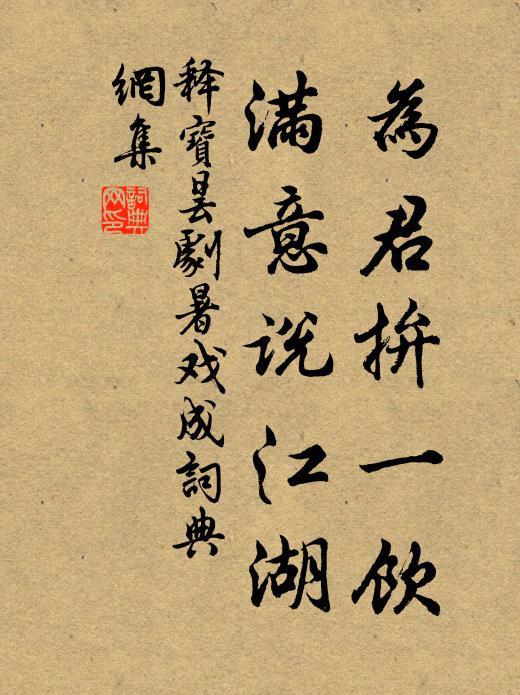 為君拚一飲
滿意説江湖
释寶曇劇暑戏成詞典
網集
詞典
网印